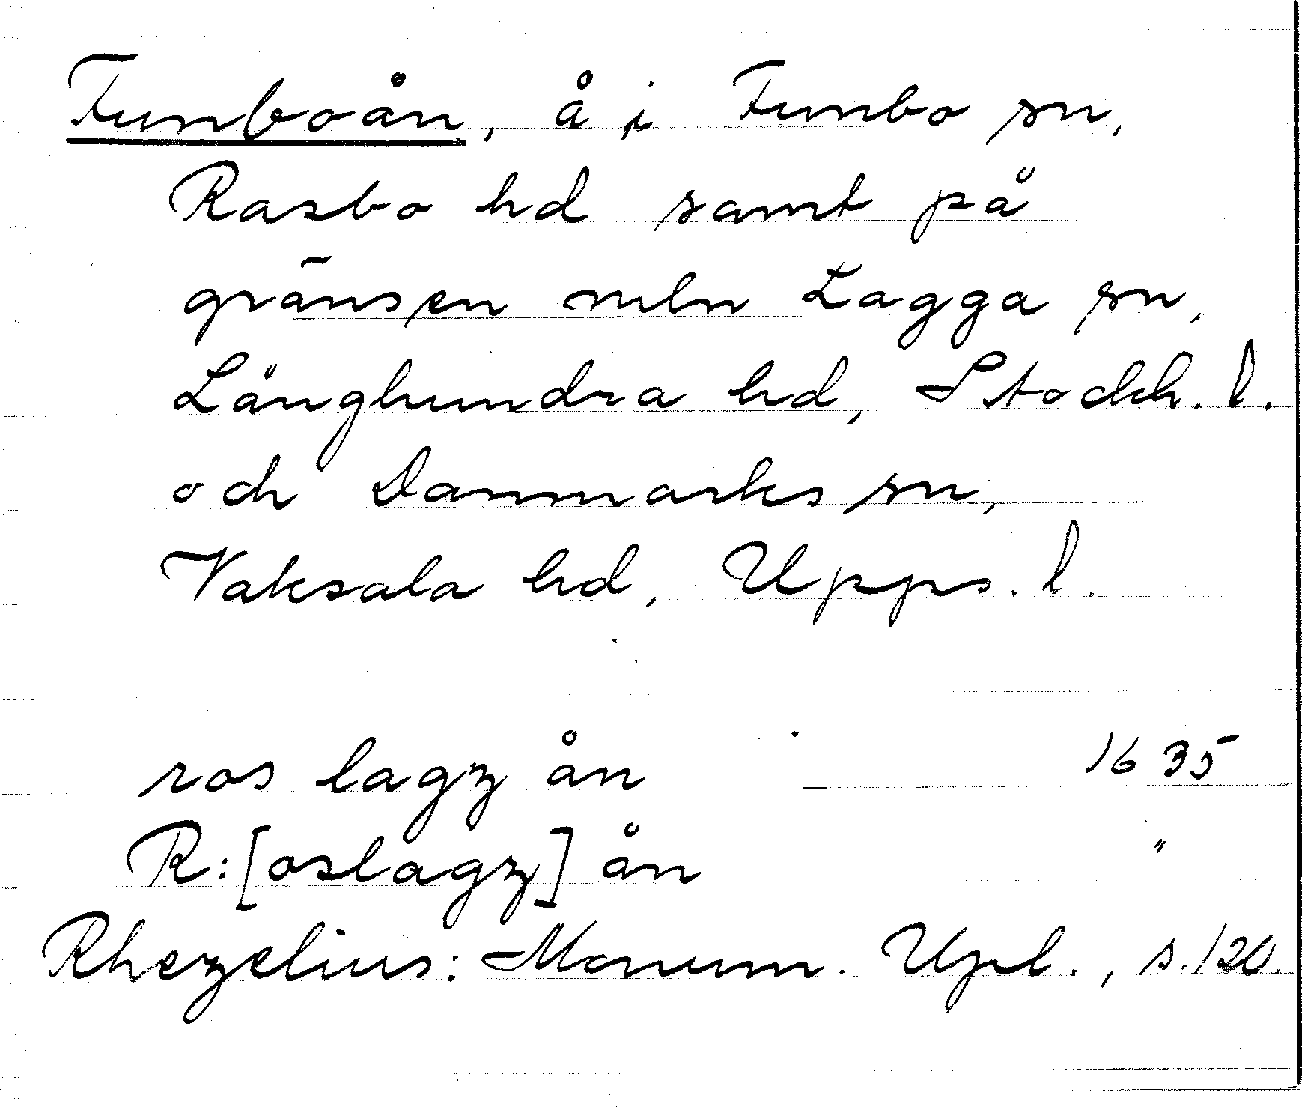 Funboån, å i Funbo sn,
Rasbo hd samt på
gränsen mln Lagga sn,
Långhundra hd, Stockh. l.
och Danmarks sn,
Vaksala hd, Upps. l.
ros lagz ån 1635
R:[oslagz] ån "
Rhezelius: Monum. Upl., s. 120.